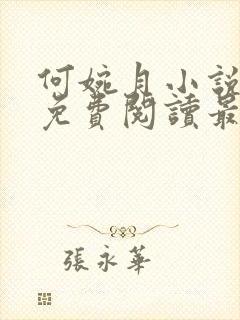 何婉月小說
免費閱讀最
張永華